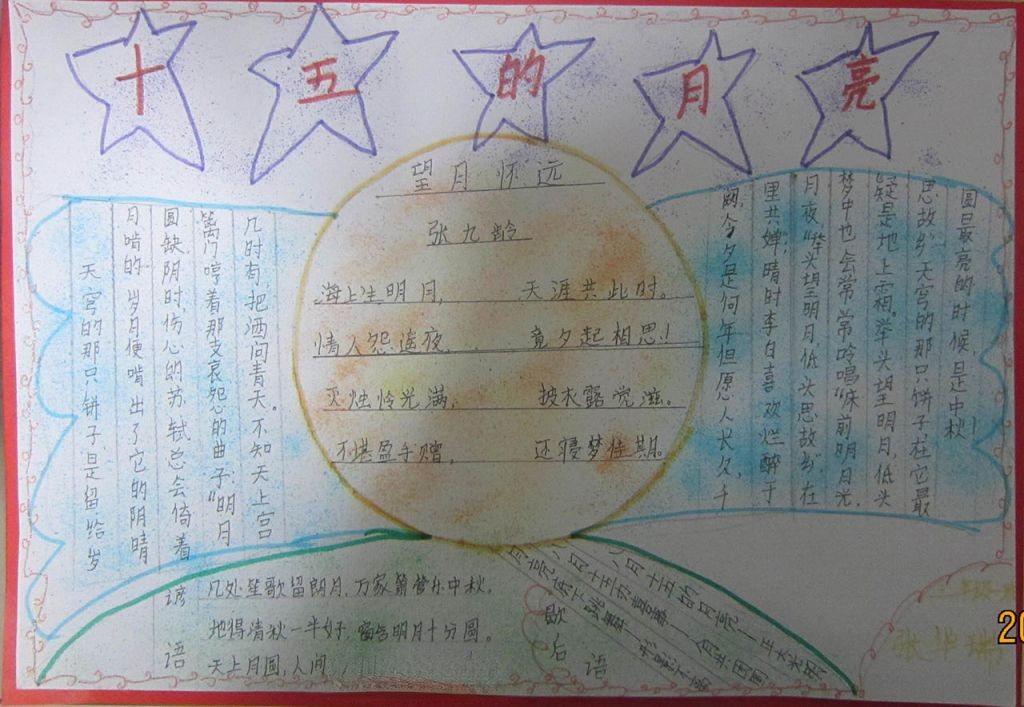 十五的月亮
望月怀远
张九龄
海上生明月, 天涯共此时。
情人怨遥夜, 竟夕起相思!
灭烛怜光满, 披衣露觉滋。
不堪盈手赠, 还寝梦佳期。
天宫的那只饼子,是留给岁
月啃的。岁月便啃出了它的阴晴
圆缺。阴时,伤心的苏轼总会倚着
篱门哼着那支哀怨的曲子:“明月
几时有,把酒问青天。不知天上宫
阙,今夕是何年但愿人长久,千
里共婵”,晴时李白喜欢烂醉于
月夜“举头望明月低头思故乡”在
梦中也会常常吟唱“床前明月光,
疑是地上霜。举头望明月,低头
思故乡”天宫的那只饼子在它最
圆最亮的时候,是中秋!
谚语
几处笙歌留朗月,万家箫管乐中秋。
地得清秋一半好,窗含明月十分圆。
天上月圆,人间
歇后语
八月十五的月亮—正大光明
八月十五办喜事—人月团圆
月亮底下
张华
20